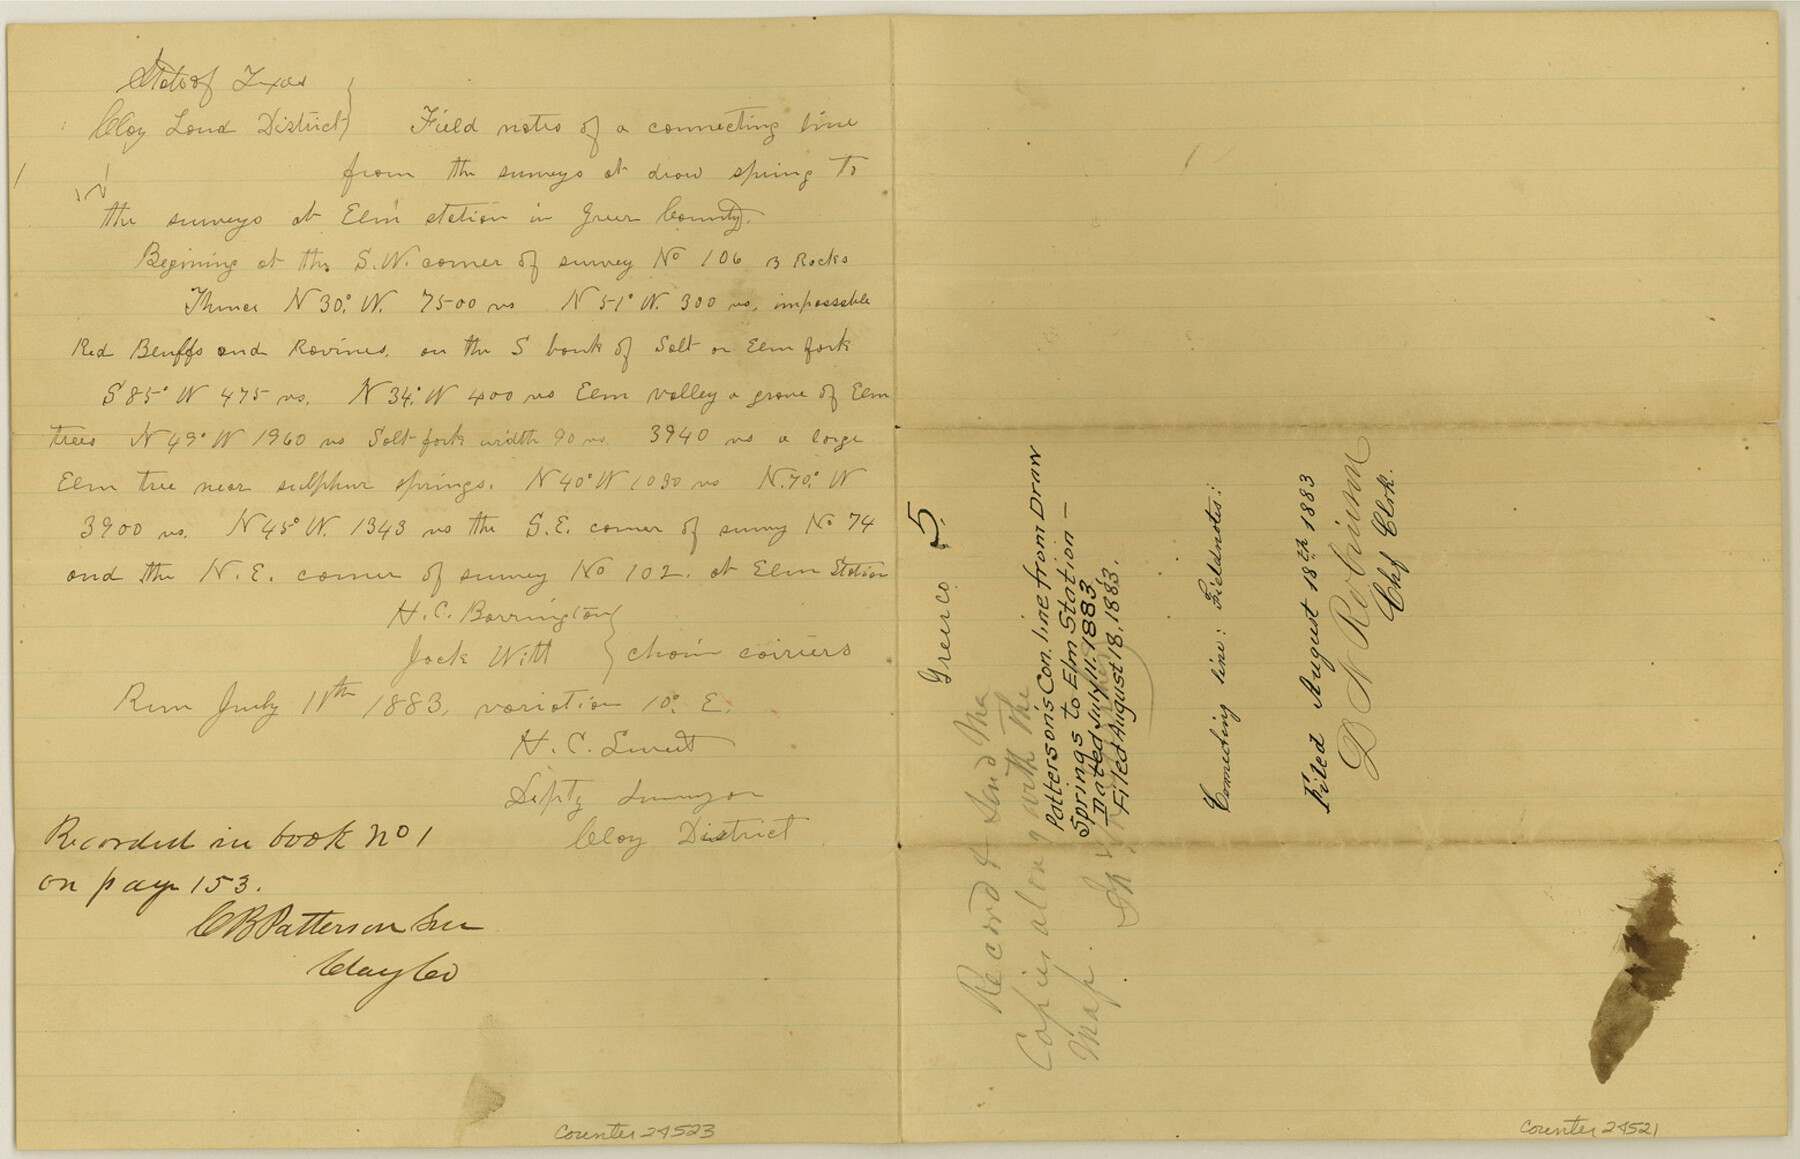 State of Texas
Clay Land District } Field notes of a connecting line
from the surveys at draw spring to
the surveys at Elm station in Greer County.
Begining at the S.W. corner of survey No 106 3 Rocks
Thence N 30° W. 7500 vs N 51° W. 300 vs. impassable
Red Bluffs and Ravines. on the S bank of Salt or Elm fork
S 85° W 475 vs. N 34° W 400 vs Elm valley a grove of Elm
trees N 49° W 1960 vs Salt fork width 90 vs. 3940 vs a large
Elm tree near sulphur springs. N 40° W 1030 vs N. 70° W
3900 vs. N 45° W. 1343 vs the S.E. corner of survey No 74
and the N.E. corner of survey No 102. at Elm Station
H. C. Barrington
Jack Witt } chain cairiers
Run July 11th 1883, variation 10° E.
H. C. Sweet
Depty Surveyor
Clay District
Recorded in book No 1
on page 153.
C B Patterson Sur
Clay Co
Counter 24523
Greer Co 5.
Record & send Me
Copies along with the
Map.
Patterson's Con. line from Draw
Springs to Elm Station —
Dated July 11. 1883
Filed August 18, 1883.
Connecting line: Fieldnotes:
Filed August 18th 1883
D N Robinson
Chf Clrk.
Counter 24521